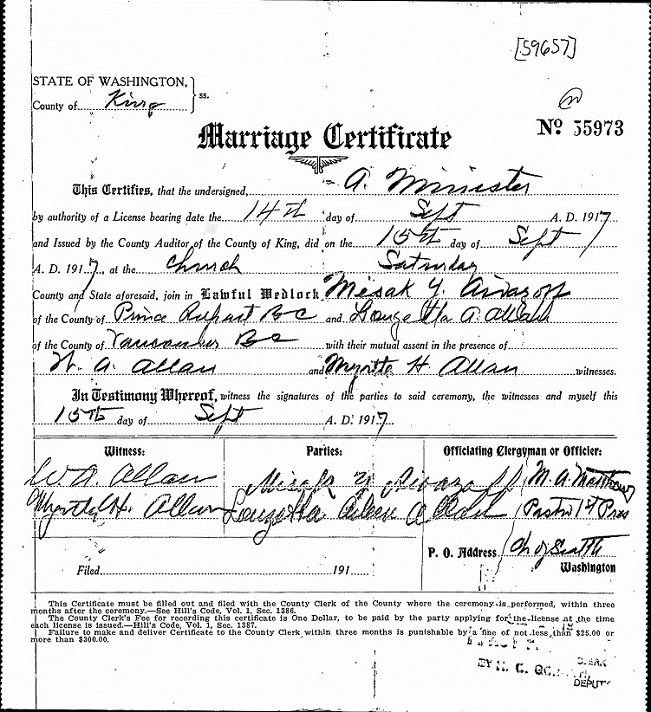 [59657]
STATE OF WASHINGTON, } ss.
County of King
No 55973
Marriage Certificate
This Certifies, that the undersigned, A. Minister
by authority of a License bearing date the 14th day of Sept A. D. 1917
and Issued by the County Auditor of the County of King, did on the 15th day of Sept
A. D. 1917, at the Church Saturday
County and State aforesaid, join in Lawful Wedlock Misak Y. Aivazoff
of the County of Prince Rupert BC and Louzetta A. Allan
of the County of Vancouver BC with their mutual assent in the presence of
W. A. Allan and Myrtle H Allan witnesses.
In Testimony Whereof, witness the signatures of the parties to said ceremony, the witnesses and myself this
15th day of Sept A. D. 1917
Witness: Parties: Officiating Clergyman or Officer:
W. A. Allan Misak Y. Aivazoff M. A. Matthews
Myrtle H. Allan Louzetta Allan Pastor 1st Pres
P. O. Address Ch of Seattle
Filed 191 Washington
This Certificate must be filled out and filed with the County Clerk of the County where the ceremony is performed, within three
months after the ceremony.—See Hill's Code, Vol. 1, Sec. 1386.
The County Clerk's Fee for recording this certificate is One Dollar, to be paid by the party applying for the license at the time
each license is issued.—Hill's Code, Vol. 1, Sec. 1387.
Failure to make and deliver Certificate to the County Clerk within three months is punishable by a fine of not less than $25.00 or
more than $300.00.
CLERK
BY H. C.
DEPUTY